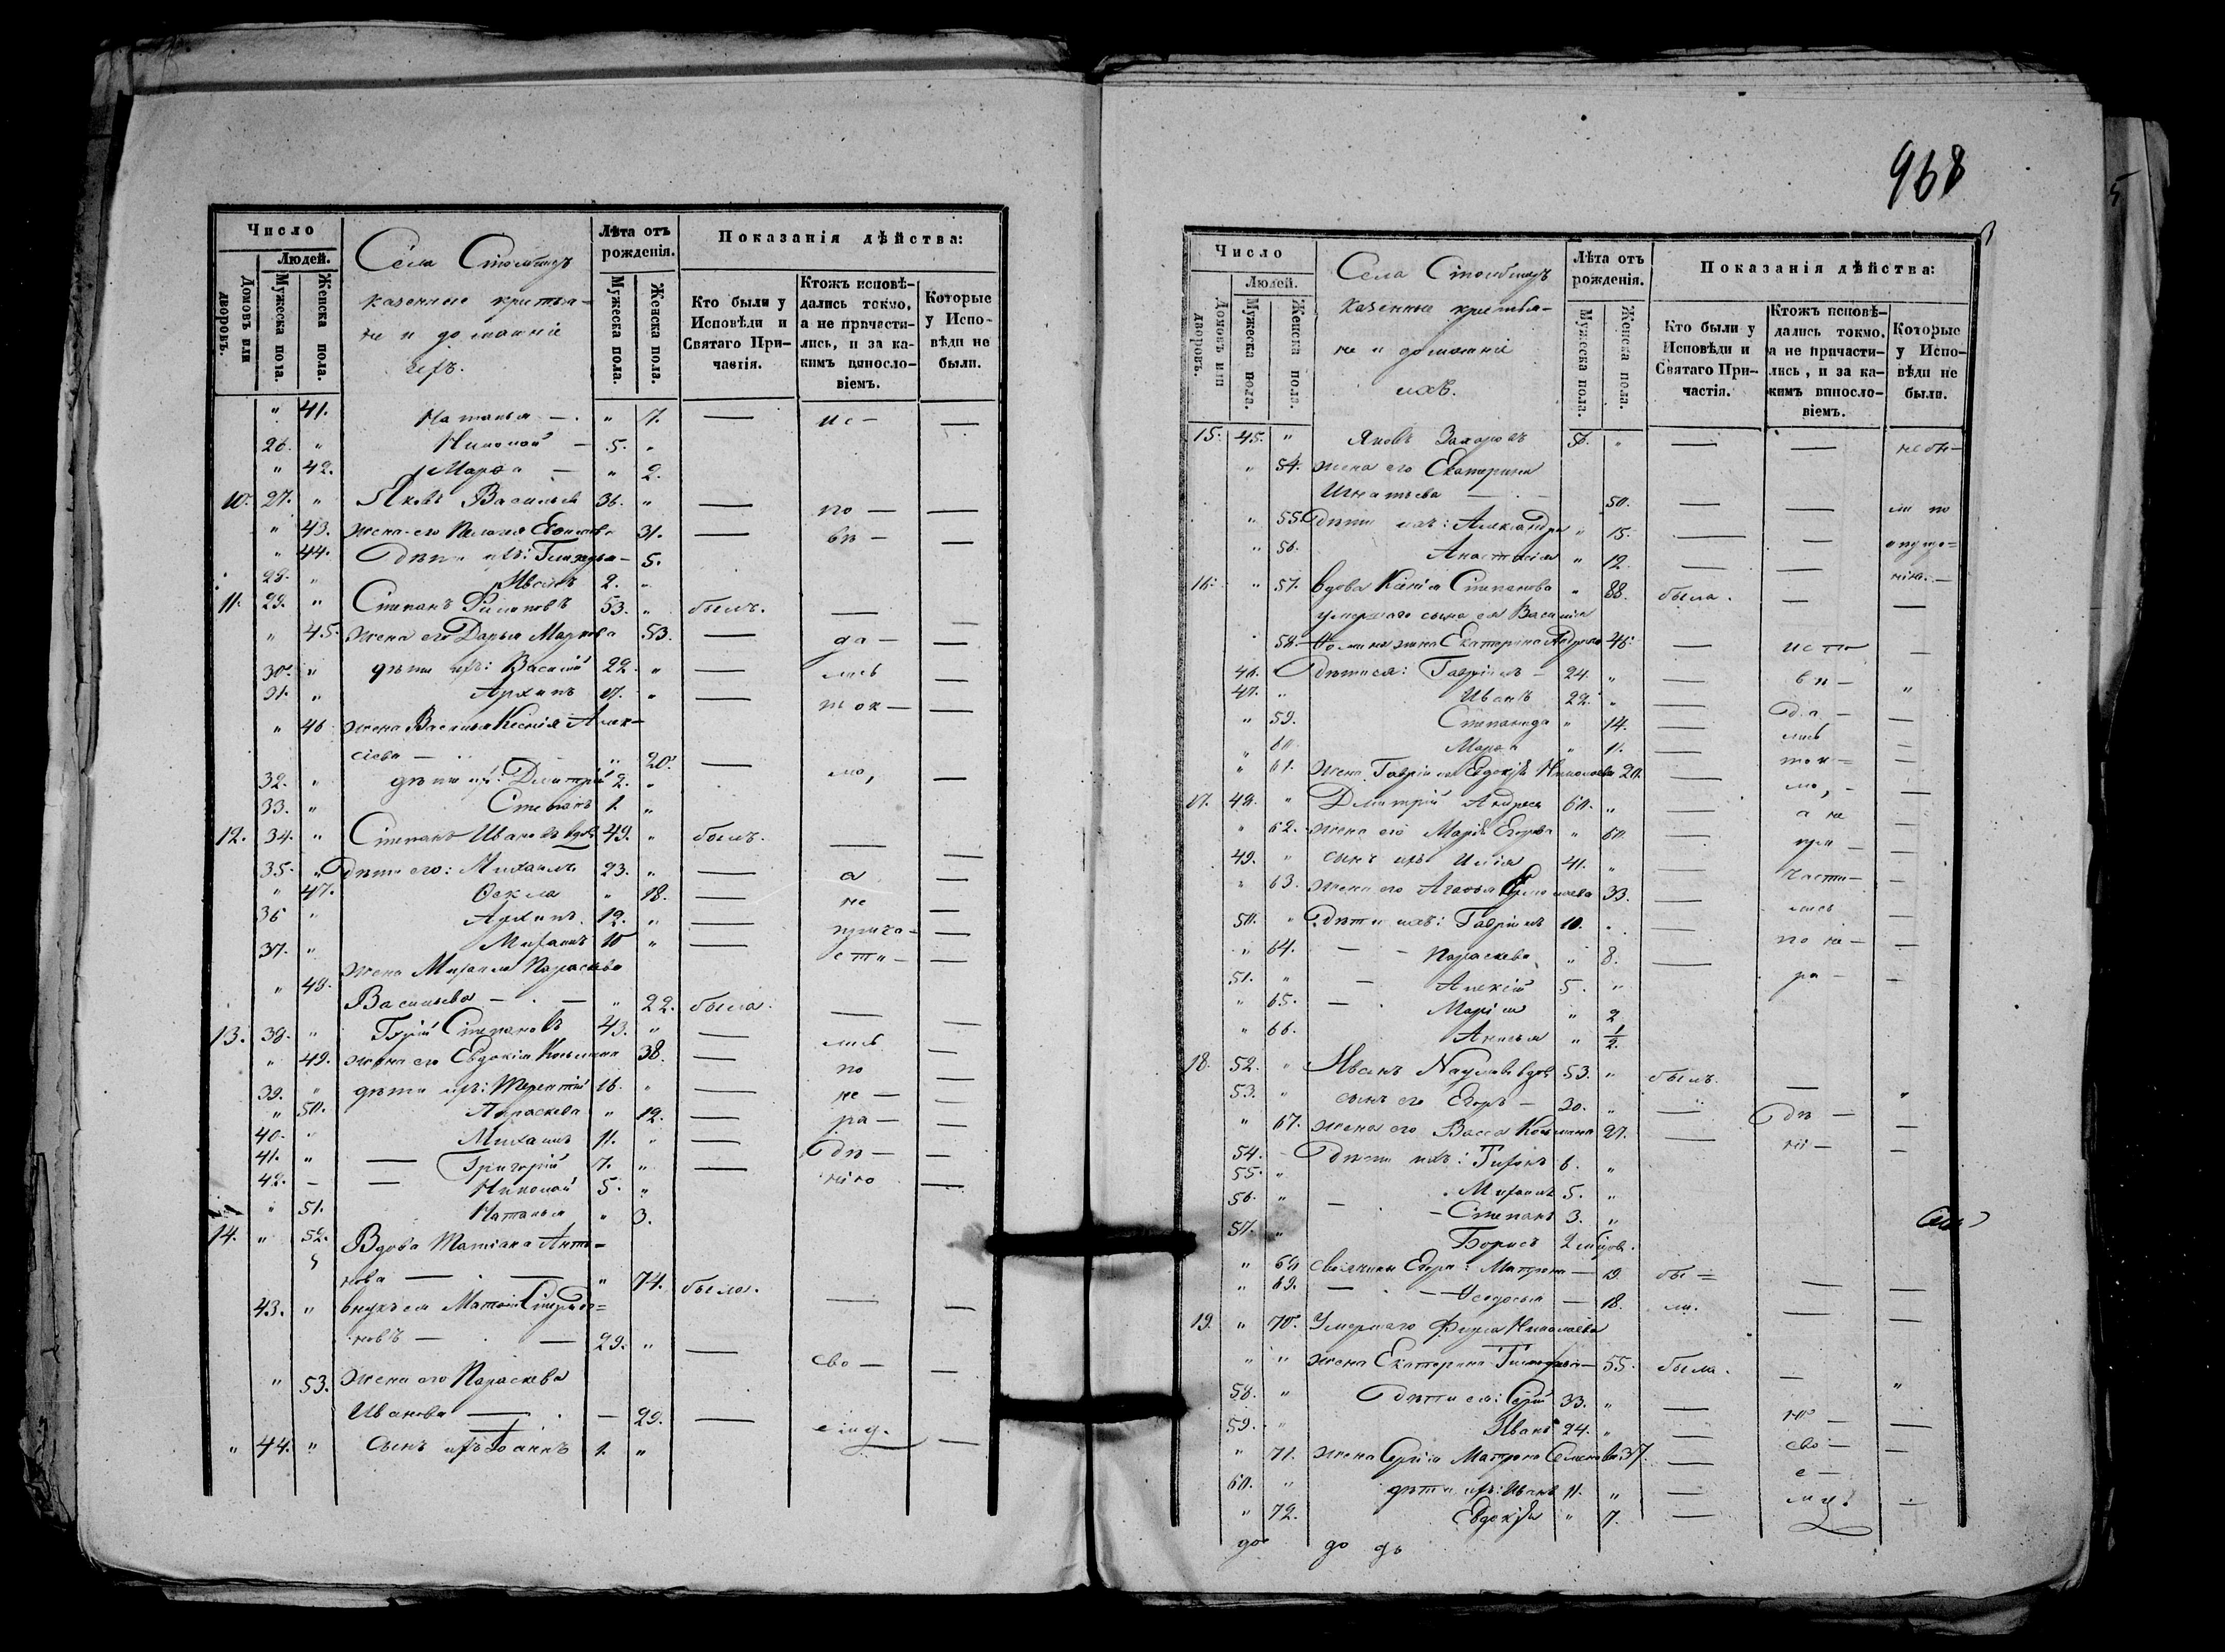 968
Число
Людей.
Домовъ или дворовъ.
Мужеска пола.
Женска пола.
Села
казенные крестья-
не и домашніе
ихъ.
Лѣта отъ рожденія.
Мужеска пола.
Женска пола.
Показанія дѣйства:
Кто были у Исповѣди и Святаго При-частія.
Ктожъ исповѣ-дались токмо, а не причасти-лись, и за ка-кимъ винословіемъ.
Которые у Испо-вѣди не были.
" 41. Наталья — " 7. — ис — —
26. " Николай — 5. "
" 42. Марѳа — " 2.
10. 27. " Яковъ Васильевъ 36. " — по — —
" 43. жена его Пелагея 31. — вѣ — —
" 44. дѣти ихъ: — 5.
28. " Иванъ 2. "
11. 29. " Степанъ Филиповъ 53. " былъ. —
" 45. жена его Дарья Маркова 53. — да — —
30. " дѣти ихъ: Василий 22. " — лись —
31. " Архипъ 17. " — ток — —
" 46 жена Василья Ксенія Алек-
сѣева — " 20. — мо, —
32. " дѣти ихъ: Дмитрій 2. "
33. " Степанъ 1. "
12. 34. " Степанъ Ивановъ вдовъ 49. " былъ. — —
35. " дѣти его: Михаилъ 23. " — а —
" 47. Ѳекла " 18. — не —
36 " Архипъ. 12. " — прича- —
37. " Михаилъ 10 " — сти — —
" 48. жена Михаила Параскева
Васильева — " 22. была. — —
13. 38. " Степановъ 43. " — лись —
" 49. жена его Евдокія Козьмина 38. — по —
39. " дѣти ихъ: Терентій 16. " — не — —
" 50. Параскева " 12. — ра — —
40. " Михаилъ 11. " — дѣ — —
41. " — Григорій 7. " — нію —
42. — — Николай 5. "
" 51. Наталья " 3.
14. " 52. Вдова Татіана Анто-
нова — " 74. была. — —
43. " внукъ ея Матвей
новъ — 29. " — сво — —
" 53. жена его Параскева
Иванова — — 29. — ему. —
" 44. " сынъ ихъ Іоаннъ 1. "
Число
Людей.
Домовъ или дворовъ.
Мужеска пола.
Женска пола.
Села
казенные крестья-
не и домашніе
ихъ.
Лѣта отъ рожденія.
Мужеска пола.
Женска пола.
Показанія дѣйства:
Кто были у Исповѣди и Святаго При-частія.
Ктожъ исповѣ-дались токмо, а не причасти-лись, и за ка-кимъ винословіемъ.
Которые у Испо-вѣди не были.
15. 45. " Яковъ Захаровъ 56. " — — не бы-
" 54. жена его Екатерина
Игнатьева — 50. — — ли по
" 55. дѣти ихъ: Александра " 15. — — опуще-
" 56. Анастасія " 12. — — нію.
16. " 57. вдова Ксенія Степанова " 88. была. — —
умершаго сына ея Василія
58. жена Екатерина 46. — исто —
46. " дѣти ея: Гавріилъ — 24. " — вѣ — "
47. " Иванъ 22. " — да — —
" 59. Степанида " 14. — лись —
" 60. Марѳа " 11. — ток- —
" 61. жена Гавріила Евдокія Николаева 20. — мо, — —
17. 48. " Дмитрій Андреевъ 60. " — а не
" 62. жена его Марія Егорова " 60 — при — —
49. " сынъ ихъ Илія 41. " — части- —
" 63. жена его Агаѳья Ермолаева 33. — лись —
50. " дѣти ихъ: Гавріилъ 10. " — по не- —
" 64. — — Параскева " 8. — ра — —
51. " — Алексій 5. "
" 65. — Марія " 2
" 66. Анисья " 1/2.
18. 52. " Иванъ Наумовъ вдовъ 53. " былъ. — "
53. " сынъ его Егоръ — 30. " — дѣ — —
" 67. жена его Васса Козьмина 27. — ні — —
54. — дѣти ихъ: 6. "
55. " Михаилъ 5. "
56. " — Степанъ 3. "
57. " Борисъ 2
" 68 Егора: Матрона — 19. бы = — —
" 69. — Ѳедосья — 18. ли. — —
19. " 70. Умершаго Николаева
" " жена Екатерина 55. была. — "
58. " дѣти ея: Сергій 33. " — по — —
59. " Иванъ 24. " — сво — —
" 71. жена Сергія Матрона 37. — е —
60. " дѣти ихъ: Иванъ 11. " — му. —
" 72. Евдокія " 7. —